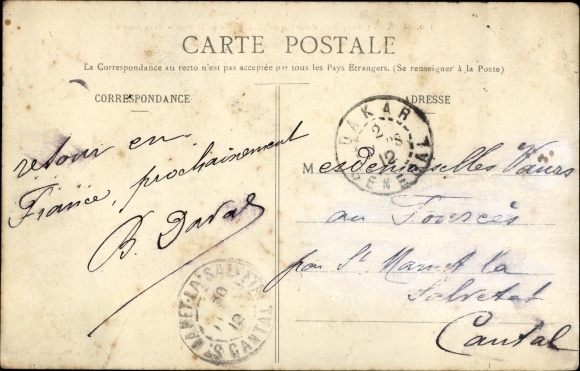 CARTE POSTALE
La Correspondance au recto n'est pas acceptée par tous les Pays Etrangers. (Se renseigner à la Poste)
CORRESPONDANCE
ADRESSE
retour en
France, prochainement
B. Daval
DAKAR
2
12
SENEGAL
Mesdemoiselles Vaurs
au Fourcès
par St Mamet la
Salvetat
Cantal
ST MAMET-LA-SALVETAT
30
12
CANTAL